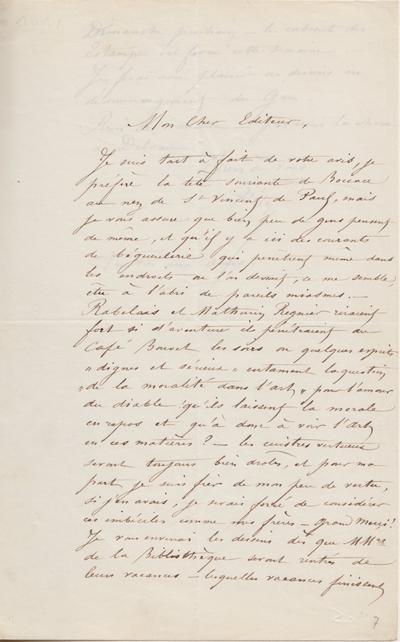 Mon Cher Editeur,
Je suis tout à fait de votre avis, je
préfère la tête souriante de Boccace
au nez de St Vincent de Paul, mais
je vous assure que bien peu de gens pensent
de même, et qu'il y a ici des courants
de bégueulerie qui penètrent même dans
les endroits où l'on devrait, ce me semble,
être à l'abri de pareils miasmes. —
Rabelais et Mathurin Regnier riraient
fort si d'aventure ils pénétraient au
Café Bouvet les soirs où quelques esprits
« dignes et sérieux » entament la question
« de la moralité dans l'art » pour l'amour
du diable qu'ils laissent la morale
en repos et qu'a donc à voir l'art
en ces matières? — les cuistres vertueux
seront toujours bien drôles, et pour ma
part, je suis fier de mon peu de vertu,
si j'en avais, je serais forcé de considérer
ces imbéciles comme mes frères — grand merci!
Je vous enverrai les dessins dès que MMrs
de la Bibliothèque seront rentrés de
leurs vacances — lesquelles vacances finissent
7